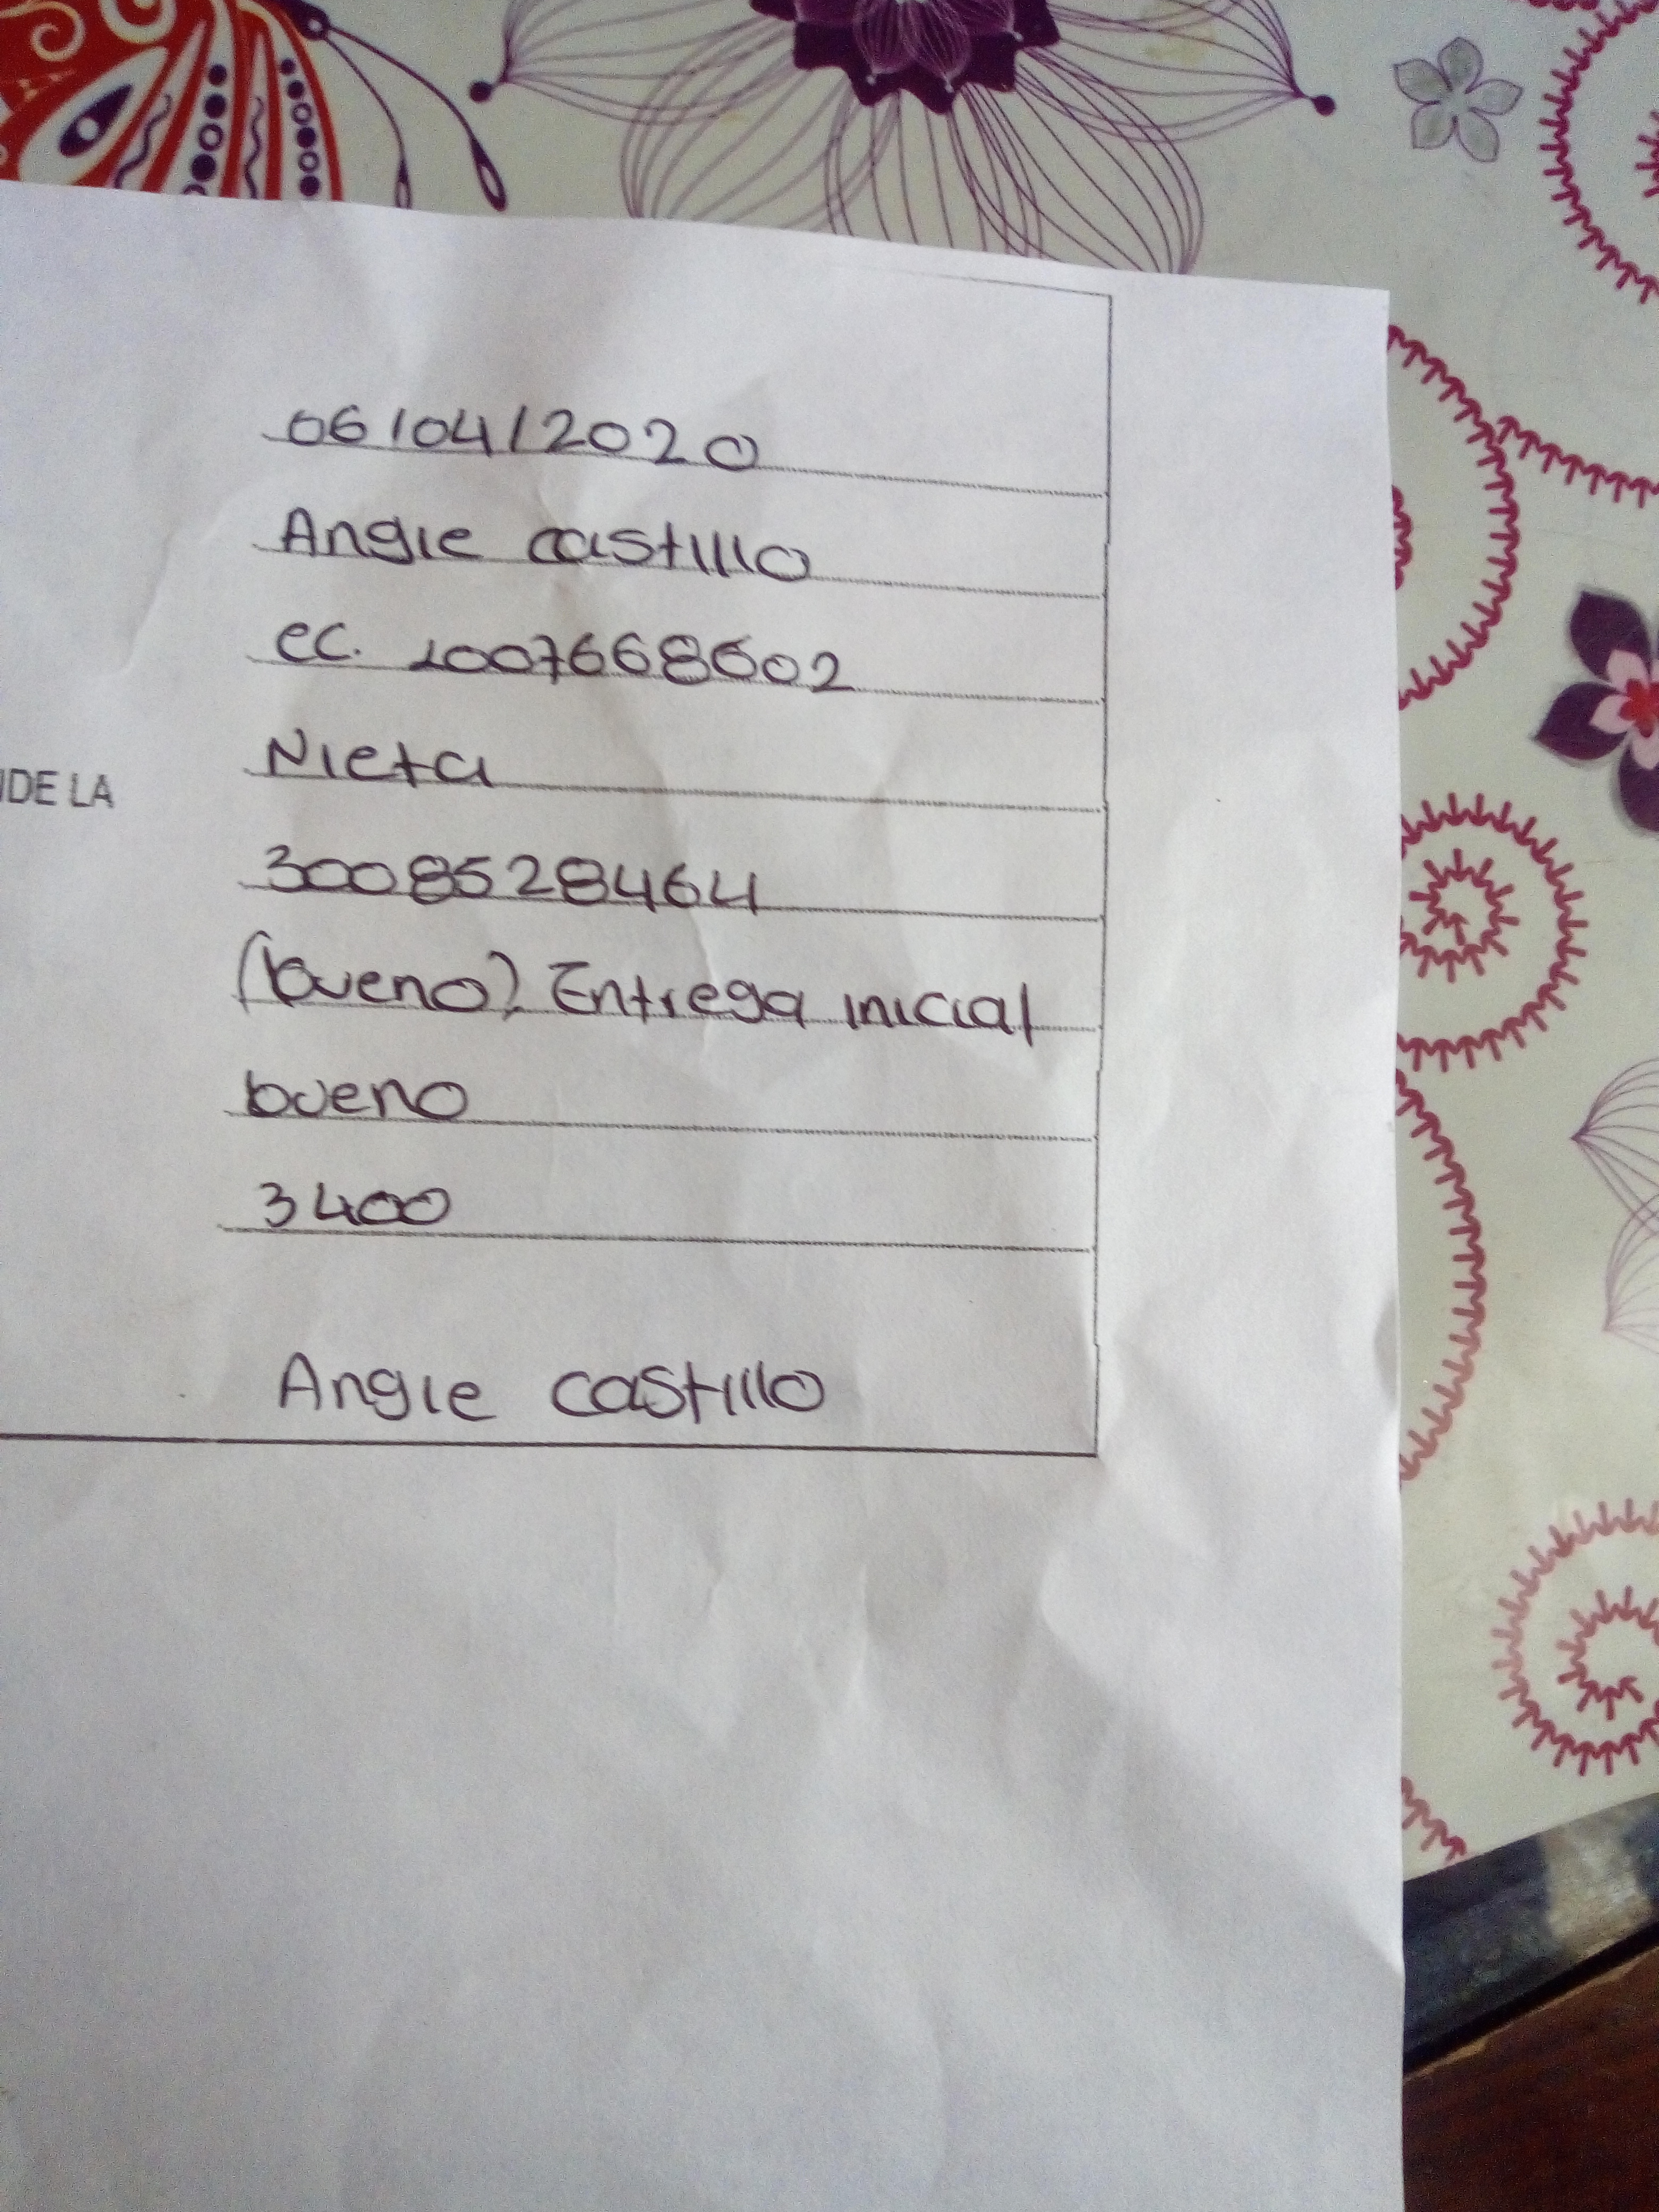 06/04/2020
Angie castillo
cc. 1007668602
IDE LA
Nieta
3008528464
(bueno). Entrega inicial
bueno
3400
Angie castillo